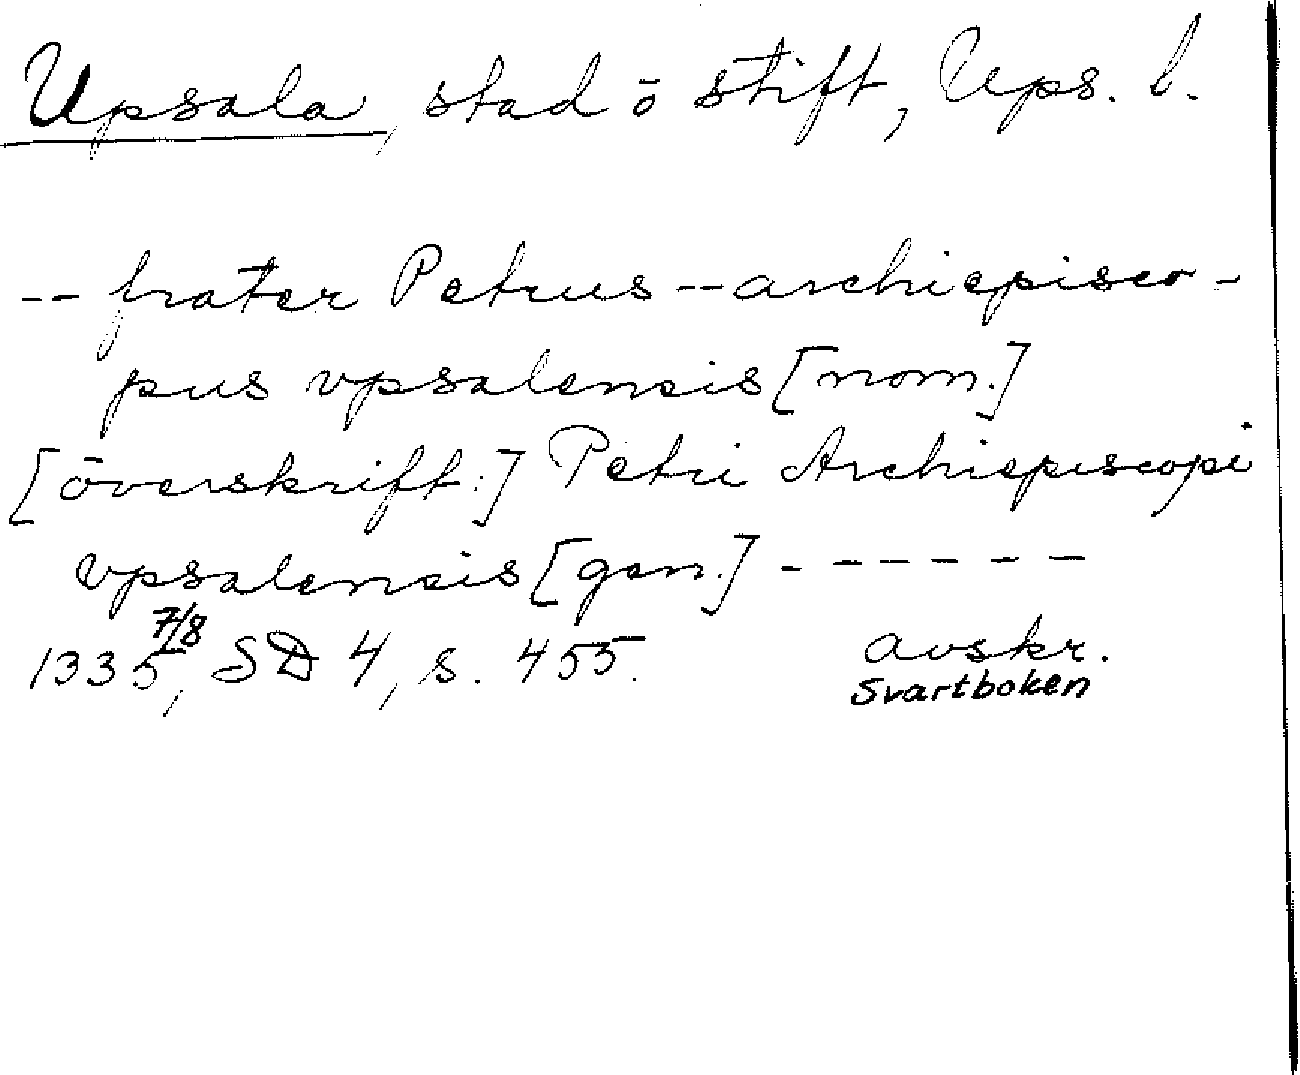 Upsala, stad o stift, Ups. l.
-- frater Petrus -- archiepisco-
pus vpsalensis [nom.]
[överskrift:] Petri Archiepiscopi
vpsalensis [gen.] - - - - - -
1335 7/8, SD 4, s. 455. avskr.
Svartboken